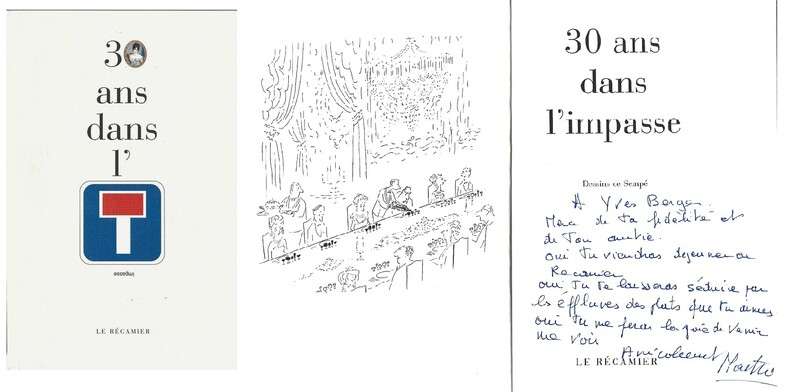 30
ans
dans
l'
impasse
LE RÉCAMIER
30 ans
dans
l'impasse
Dessins de Sempé
A Yves Berger.
Merci de ta fidélité et
de ton amitié.
oui tu viendras déjeuner au
Récamier
oui tu te laisseras séduire par
les éffluves des plats que tu aimes
oui tu me feras la joie de venir
me voir
Amicalement
LE RÉCAMIER